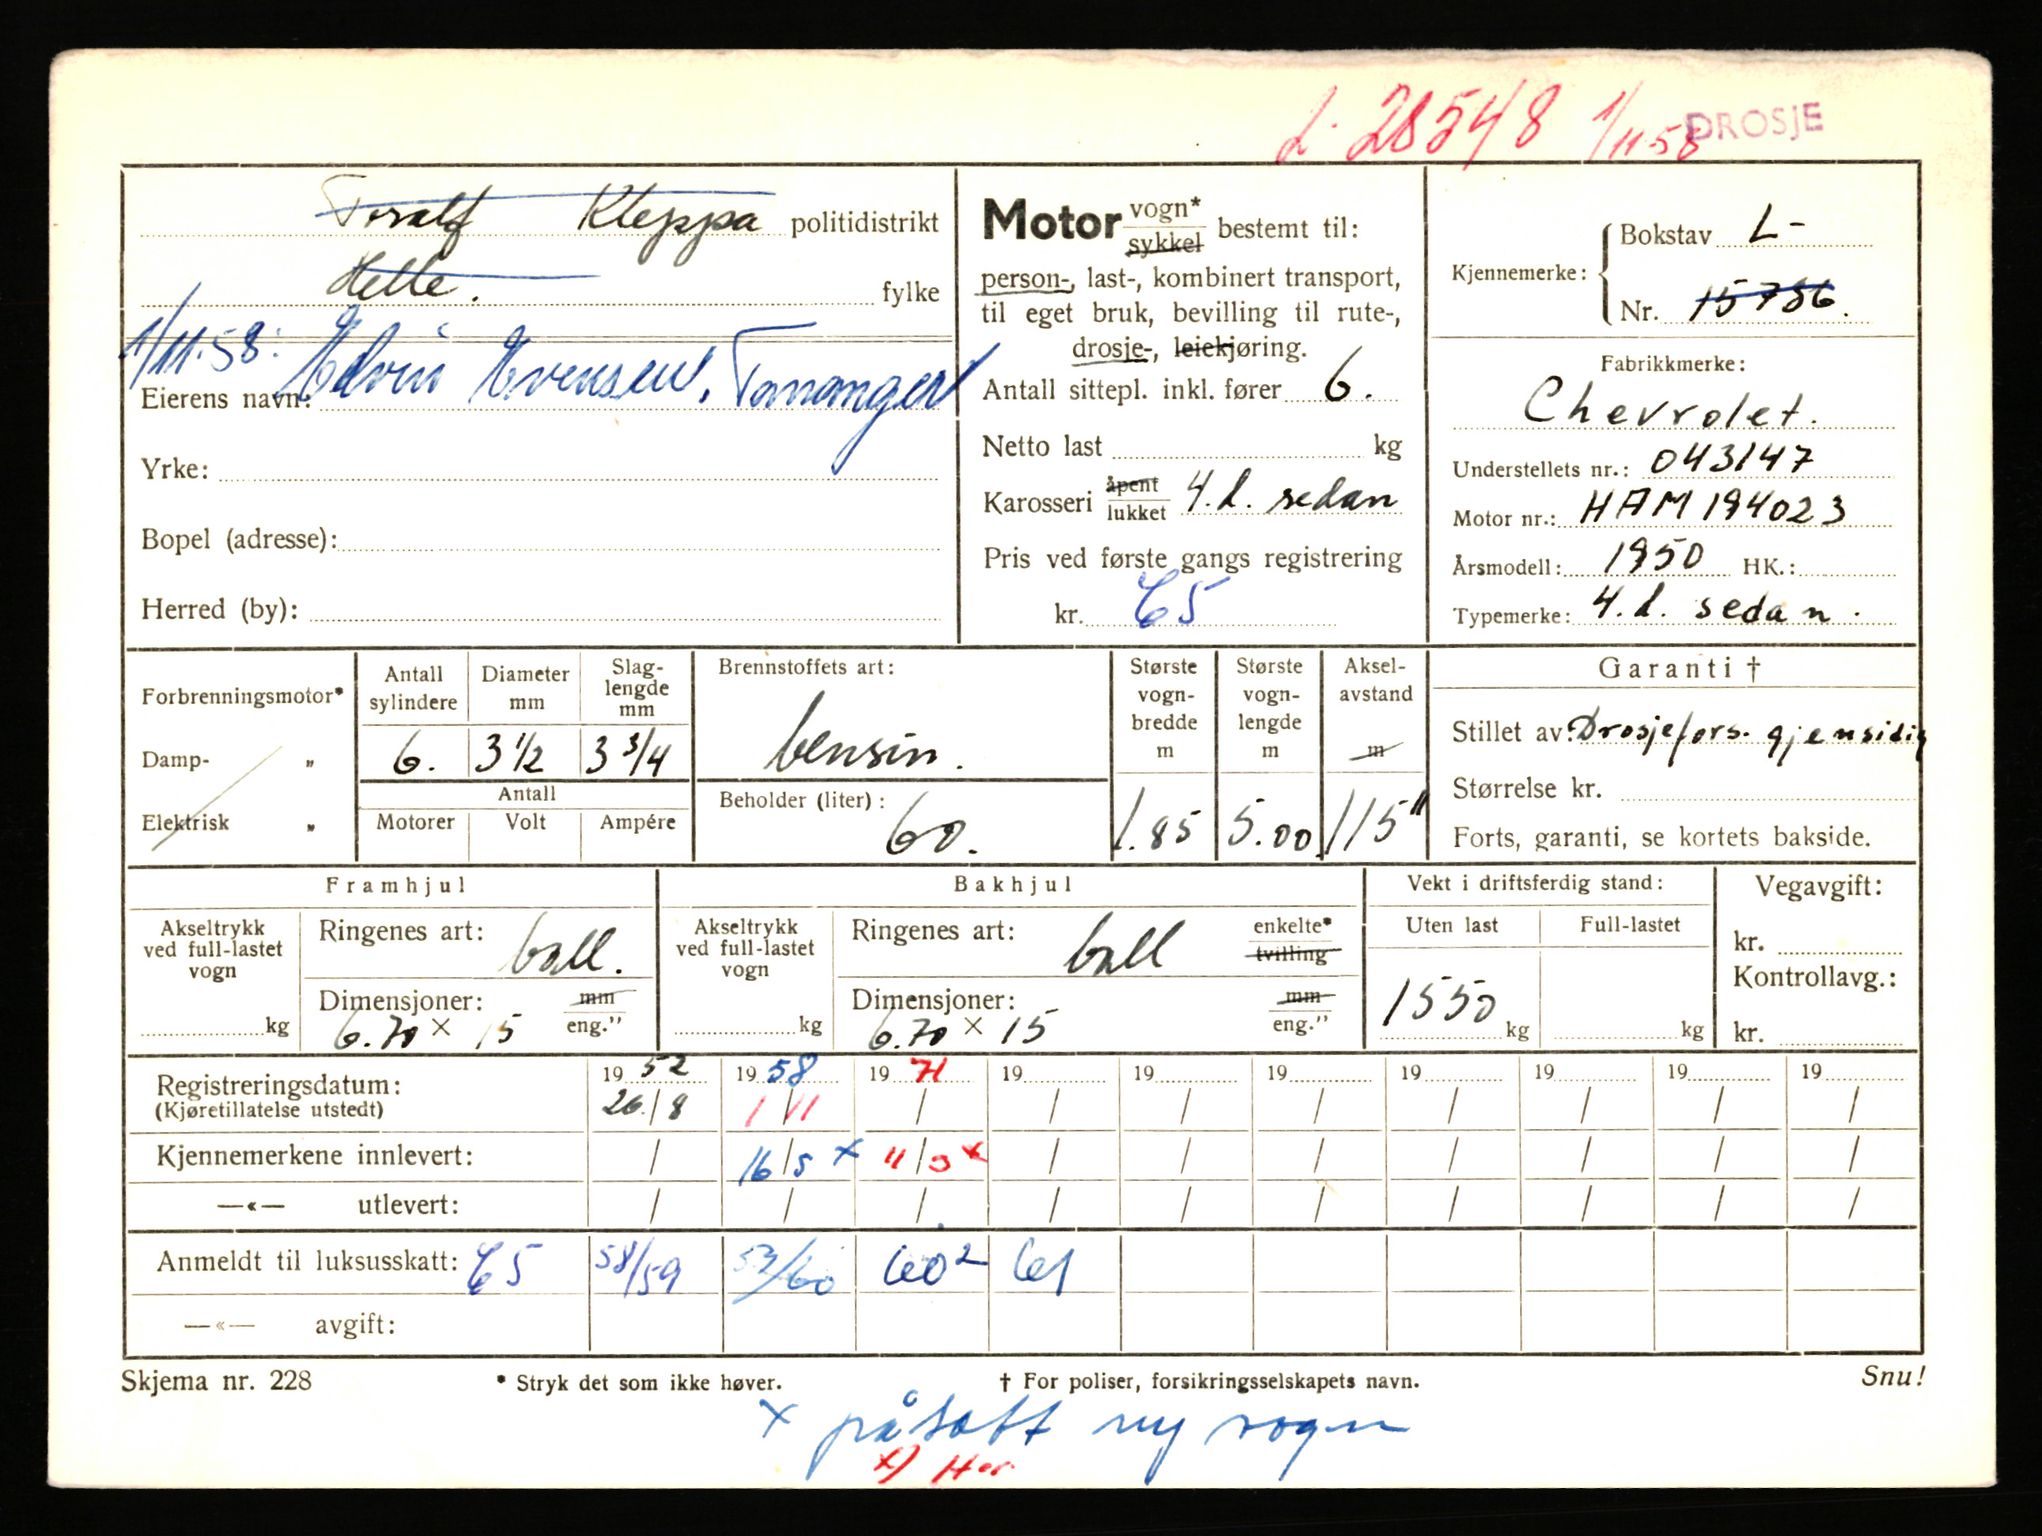 L- 28548 1/11-58 DROSJE
Toralf Kleppa politidistrikt
Helle. fylke
1/11.58: Edvin Evensen, Tananger
Eierens navn:
Yrke:
Bopel (adresse):
Herred (by):
Motor vogn* sykkel bestemt til:
person-, last-, kombinert transport,
til eget bruk, bevilling til rute-,
drosje-, leiekjøring.
Antall sittepl. inkl. fører 6.
Netto last kg
Karosseri åpent lukket 4.d. sedan
Pris ved første gangs registrering
kr. C5
Kjennemerke: Bokstav L-
Nr. 15786.
Fabrikkmerke:
Chevrolet.
Understellets nr.: 043147
Motor nr.: HAM 194023
Årsmodell: 1950 HK.:
Typemerke: 4.d. sedan.
Forbrenningsmotor*
Damp- „
Elektrisk „
Antall sylindere
6.
Diameter mm
3 1/2
Slag-lengde mm
3 3/4
Antall
Motorer Volt Ampére
Brennstoffets art:
bensin.
Beholder (liter):
60.
Største vogn-bredde m
1.85
Største vogn-lengde m
5.00
Aksel-avstand m
115"
Garanti †
Stillet av: Drosjefors. gjensidig
Størrelse kr.
Forts, garanti, se kortets bakside.
Framhjul
Akseltrykk ved full-lastet vogn
kg
Ringenes art: ball.
Dimensjoner: mm
6.70 × 15 eng."
Bakhjul
Akseltrykk ved full-lastet vogn
kg
Ringenes art: ball enkelte* tvilling
Dimensjoner: mm
6.70 × 15 eng."
Vekt i driftsferdig stand:
Uten last Full-lastet
1550 kg kg
Vegavgift:
kr.
Kontrollavg.:
kr.
Registreringsdatum: 19 52 19 58 19 71 19 19 19 19 19 19 19
(Kjøretillatelse utstedt) 26./8 1/11 / / / / / / / /
Kjennemerkene innlevert: / 16/5 × 11/3 × / / / / / / /
—«— utlevert: / / / / / / / / / /
Anmeldt til luksusskatt: C5 58/59 59/60 60² 61
—«— avgift:
Skjema nr. 228 * Stryk det som ikke høver. † For poliser, forsikringsselskapets navn. Snu!
× påsatt ny vogn
×)